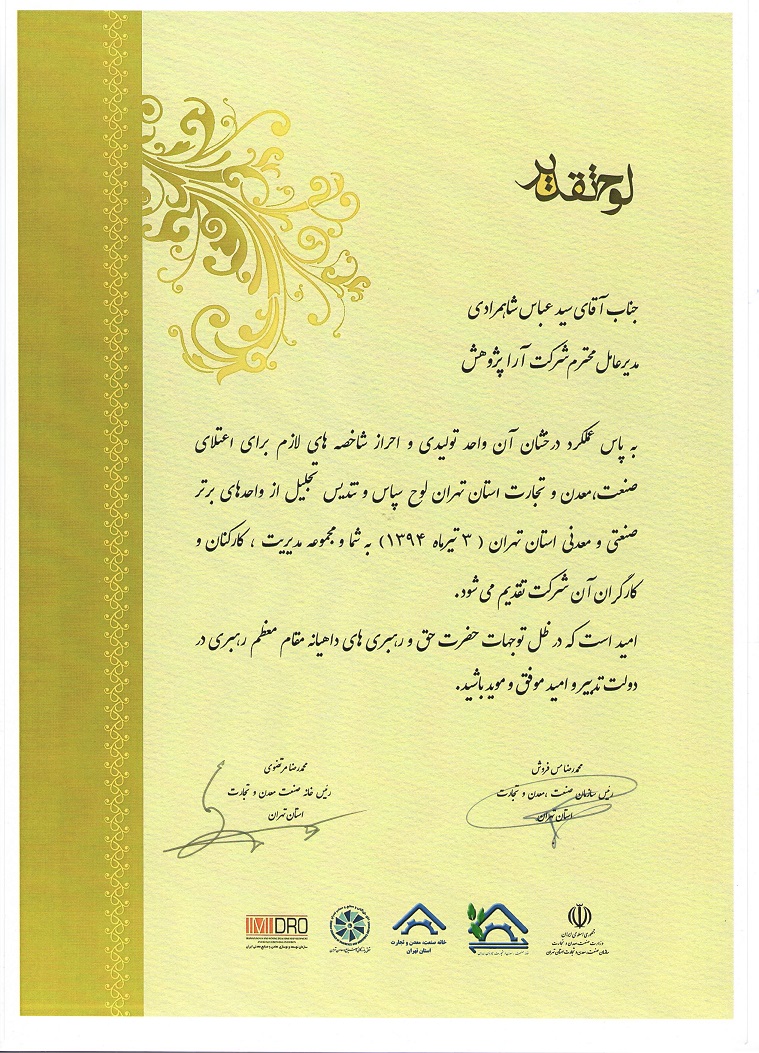 لوح تقدیر
جناب آقای سید عباس شاهمرادی
مدیرعامل محترم شرکت آرا پژوهش
به پاس عملکرد درخشان آن واحد تولیدی و احراز شاخصه های لازم برای اعتلای
صنعت،معدن و تجارت استان تهران لوح سپاس و تندیس تجلیل از واحدهای برتر
صنعتی و معدنی استان تهران ( ۳ تیرماه ۱۳۹۴) به شما و مجموعه مدیریت ، کارکنان و
کارگران آن شرکت تقدیم می شود.
امید است که در ظل توجهات حضرت حق و رهبری های داهیانه مقام معظم رهبری در
دولت تدبیر و امید موفق و موید باشید.
محمدرضا مس فروش
رئیس سازمان صنعت ،معدن و تجارت
استان تهران
محمدرضا مرتضوی
رئیس خانه صنعت معدن و تجارت
استان تهران
جمهوری اسلامی ایران
وزارت صنعت، معدن و تجارت
سازمان صنعت، معدن و تجارت استان تهران
خانه صنعت، معدن و تجارت
استان تهران
IMIDRO
سازمان توسعه و نوسازی معادن و صنایع معدنی ایران